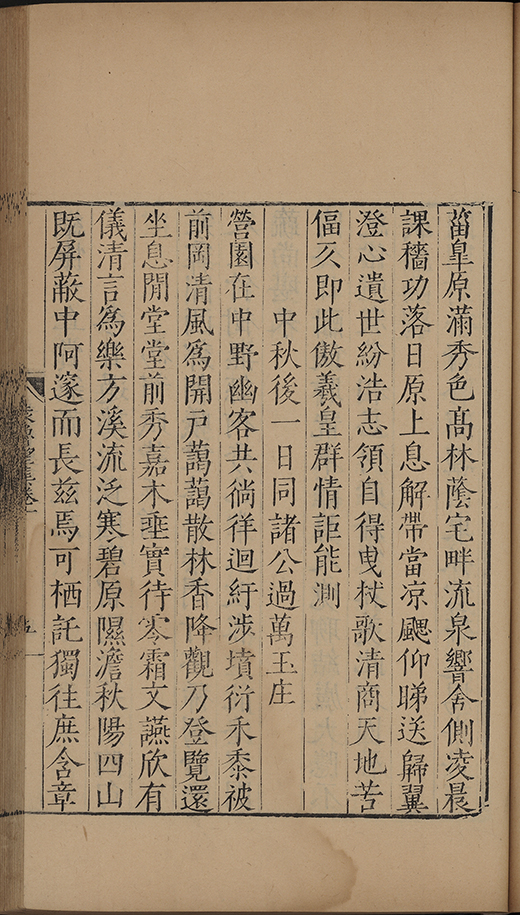 菑皐原滿秀色髙林蔭宅畔流泉響舍側凌晨
課穡功落日原上息解帶當凉颸仰睇送歸翼
澄心遺世紛浩志領自得曵杖歌清商天地苦
偪仄即此傲羲皇群情詎能測
中秋後一日同諸公過萬玉庄
營園在中野幽客共徜徉迴紆涉墳衍禾黍被
前岡清風爲開戸藹藹散林香降觀乃登覽還
坐息閒堂堂前秀嘉木埀實待零霜文讌欣有
儀清言爲樂方溪流泛寒碧原隰澹秋陽四山
既屏蔽中阿邃而長兹焉可栖託獨往庶含章